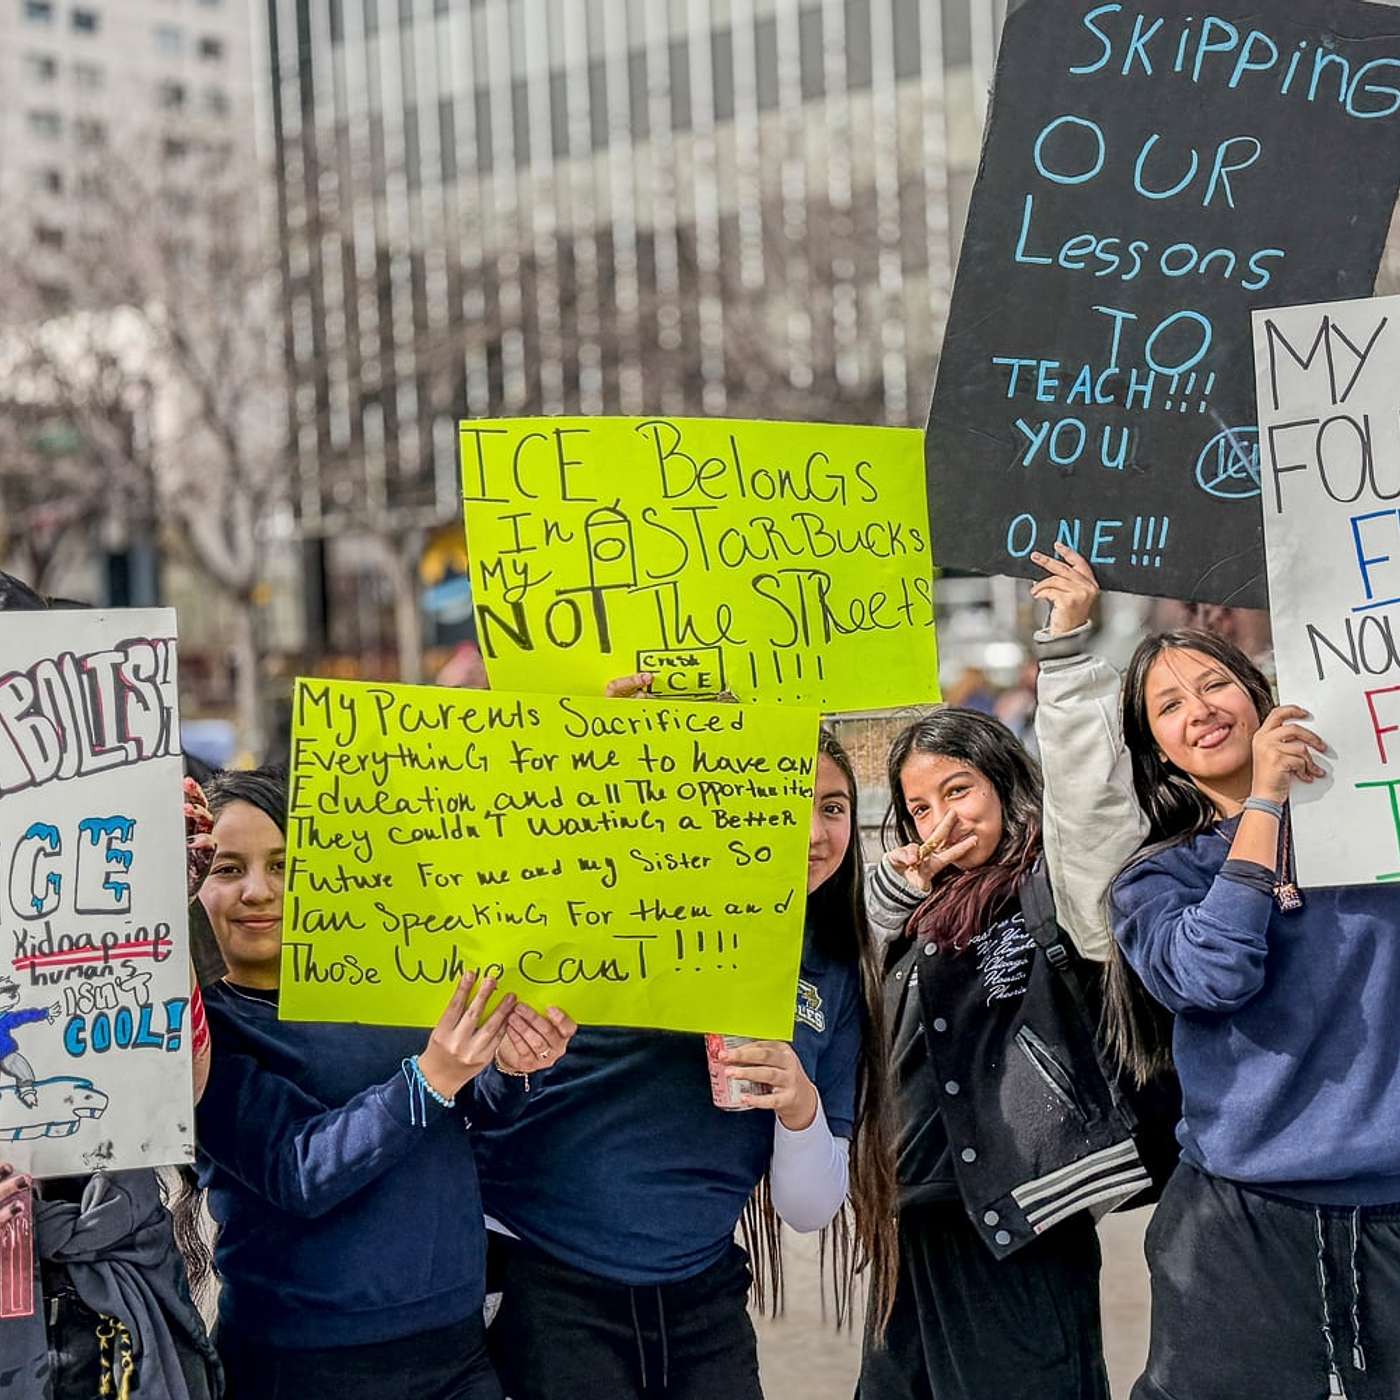 ABOLISH
ICE
Kidnapping
human's
ISN'T
COOL!
My Parents Sacrificed
Everything for me to have an
Education, and all The opportunities
They couldn'T WantinG a Better
Future For me and my Sister SO
I am SpeakinG For them and
Those Who Can'T!!!!
ICE BelonGs
In
My STarBucks
NOT The STReets
!!!!
Crush
ICE
SKiPPinG
OUR
Lessons
TO
TEACH!!!
YOU
ONE!!!
ICE
MY
FOU
F
NOW
F